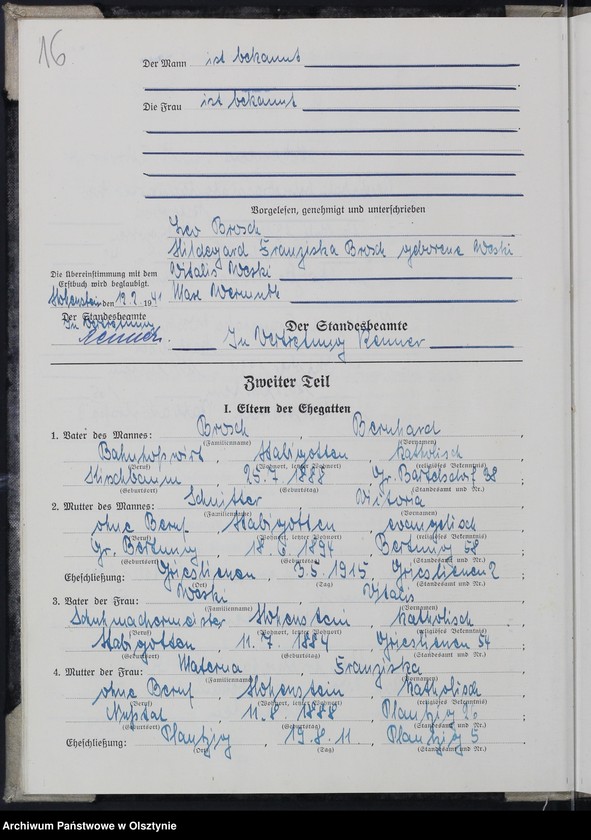 16
Der Mann ist bekannt
Die Frau ist bekannt
Vorgelesen, genehmigt und unterschrieben
Leo Brosch
Hildegard Franziska Brosch geborene Woski
Vitalis Woski
Die Übereinstimmung mit dem
Erstbuch wird beglaubigt.
Hohenstein den 19. 2. 1941
Der Standesbeamte
In Vertretung
Der Standesbeamte
In Vertretung
Zweiter Teil
I. Eltern der Ehegatten
1. Vater des Mannes: Brosch, Bernhard
(Familienname) (Vornamen)
Bahnhofswirt, Stabigotten, katholisch
(Beruf) (Wohnort, letzter Wohnort) (religiöses Bekenntnis)
25. 7. 1888, Gr. Bartelsdorf 38;
(Geburtsort) (Geburtstag) (Standesamt und Nr.)
2. Mutter des Mannes: Schnitter, Viktoria
(Familienname) (Vornamen)
ohne Beruf, Stabigotten, evangelisch
(Beruf) (Wohnort, letzter Wohnort) (religiöses Bekenntnis)
Gr. Bertung, 1894, Bertung 58;
(Geburtsort) (Geburtstag) (Standesamt und Nr.)
Eheschließung: Grieslienen, 3. 5. 1915, Grieslienen 2
(Ort) (Tag) (Standesamt und Nr.)
3. Vater der Frau: Woski, Vitalis
(Familienname) (Vornamen)
Schuhmachermeister, Hohenstein, katholisch
(Beruf) (Wohnort, letzter Wohnort) (religiöses Bekenntnis)
Stabigotten, 11. 7. 1884, Grieslienen 54;
(Geburtsort) (Geburtstag) (Standesamt und Nr.)
4. Mutter der Frau: Materna, Franziska
(Familienname) (Vornamen)
ohne Beruf, Hohenstein, katholisch
(Beruf) (Wohnort, letzter Wohnort) (religiöses Bekenntnis)
Nußtal, 11. 8. 1888, Plautzig
(Geburtsort) (Geburtstag) (Standesamt und Nr.)
Eheschließung: Plautzig, 19. 8. 11, Plautzig 5
(Ort) (Tag) (Standesamt und Nr.)
Archiwum Państwowe w Olsztynie